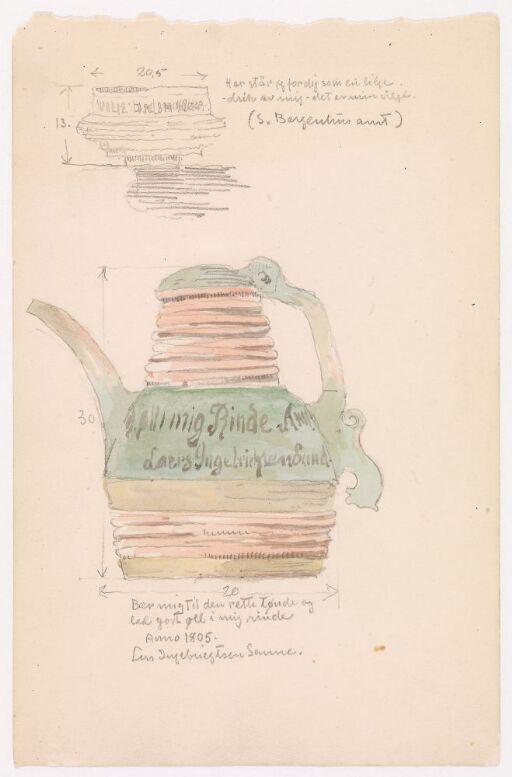 20,5
Her står jeg for dig som en lilje.
drik av mig - det er min vilje.
13.
(S. Bergenhus amt)
30
mig Rinde An
Laers Ingebrichtsen Sund
20
Bær mig til den rette tønde og
lad godt øll i mig rinde
Anno 1805.
Lars Ingebrigtsen